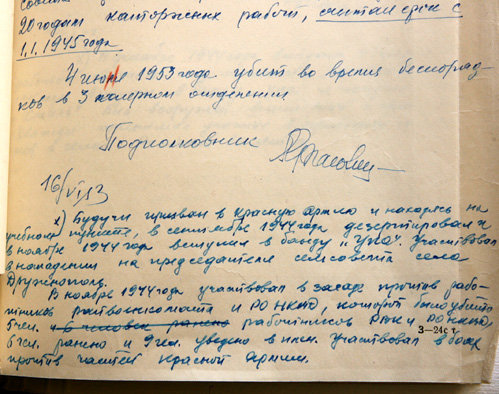 20 годам каторжных работ, считая срок с
1.1.1945 года.
4 июня 1953 года убит во время беспоряд-
ков в 3 лагерном отделении
Подполковник
16/VI 53
1) Будучи призван в Красную Армию и находясь на
учебном пункте, в сентябре 1944 года дезертировал и
в ноябре 1944 года вступил в банду "УПА". Участвовал
в нападении на председателя сельсовета села
Дружкополь.
В ноябре 1944 года участвовал в засаде против рабо-
тников райвоенкомата и РОНКВД, которой было убито
5 чел. и 6 человек ранено работников РВК и РОНКВД,
6 чел. ранено и 9 чел. уведено в плен. Участвовал в боях
против частей Красной Армии.
3—24с г.